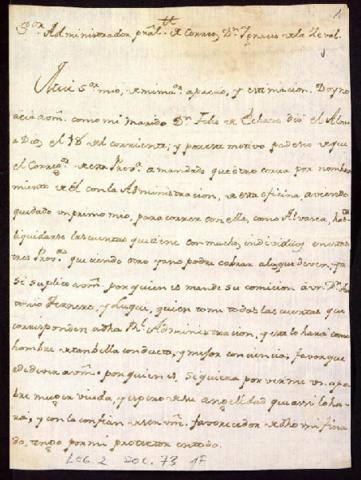 Sor Administrador pral. de Correos, Dn. Ignacio de la Zeval.
Mui Sor. mio, de mi maior aprecio, y estimacion. Doy no
ticia a vm. como mi marido Dn. Felix de dió el Alma
a Dios, el 18 del corriente; y por este motivo padezco de que
el Correg.or de esta Prov.a a mandado que otro corra por nombra
miento de él con la Administracion, de esta oficina, aviendo
quedado un primo mio, para correr con ella, como Alvacea, hta
liquidarse las cuentas que tiene con muchos individuos en estas
tres Prov.as que siendo otro ya no podré cobrar a los que deven, y a
si suplico a vm. por quien es mande su comicion a dn. An
tonio Ferrero, y Luque, quien tomó todas las cuentas que
corresponden a dha Rl. Administracion, y este lo hará como
hombre de tan bella conducta, y mejor conciencia; favor que
de deviera a vm. por quien es, siquiera por verme un apo
bre muger viuda, y espero de su angelidad que assi lo ha
rá; y con la confianza de ser vm. favorecedor de dho mi fina
do, tengo por mi protector en todo.
Leg. 2 Doc. 73 1f